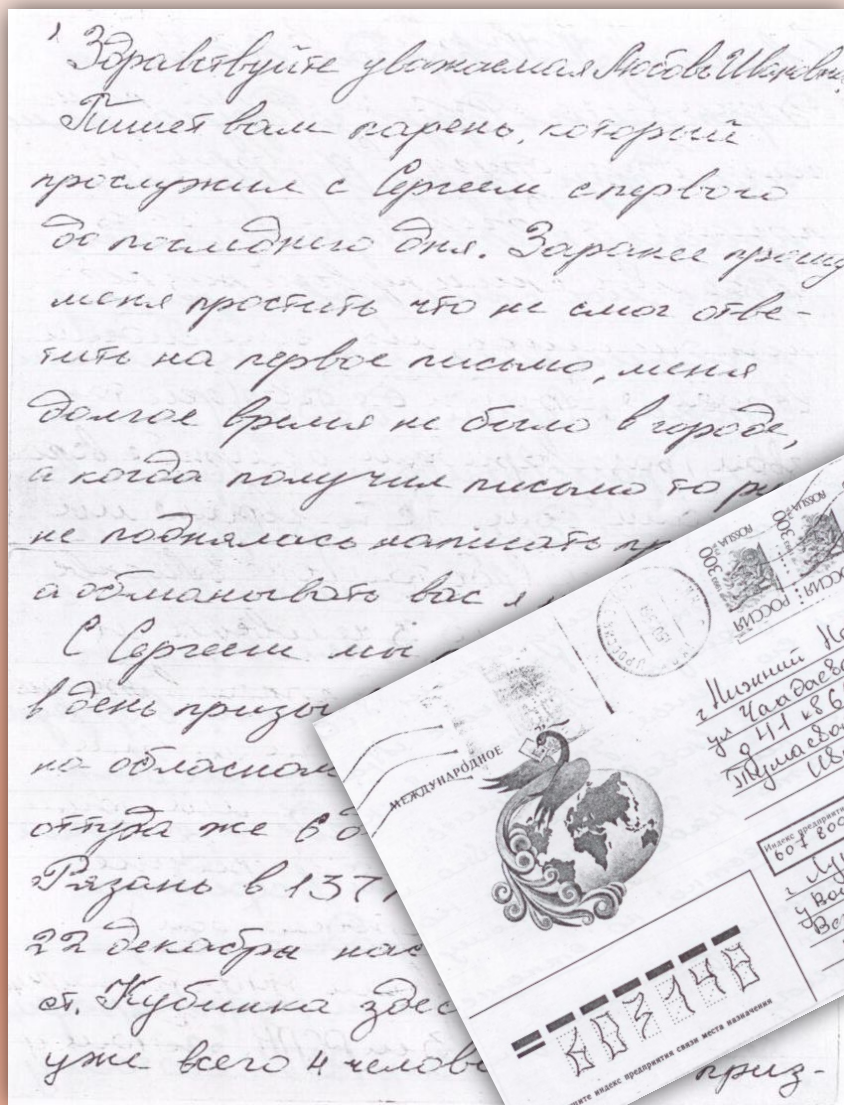 Здравствуйте уважаемая Любовь Ивановна,
Пишет вам парень, который
прослужил с Сергеем с первого
до последнего дня. Заранее прошу
меня простить что не смог отве-
тить на первое письмо, меня
долгое время не было в городе,
а когда получил письмо то
не поднялась написать
а обманывать вас я
С Сергеем мы
в день призы
на обласном
оттуда же 6
Рязань в 137
22 декабря нас
ст. Кубинка здес
уже всего 4 челове
приз-
МЕЖДУНАРОДНОЕ
РОССИЯ 300 ROSSIJA
РОССИЯ 300 ROSSIJA
г Нижний
ул Чаадаева
д 41 кв
Индекс предприяти
607800
г
603140
индекс предприятия связи места назначения